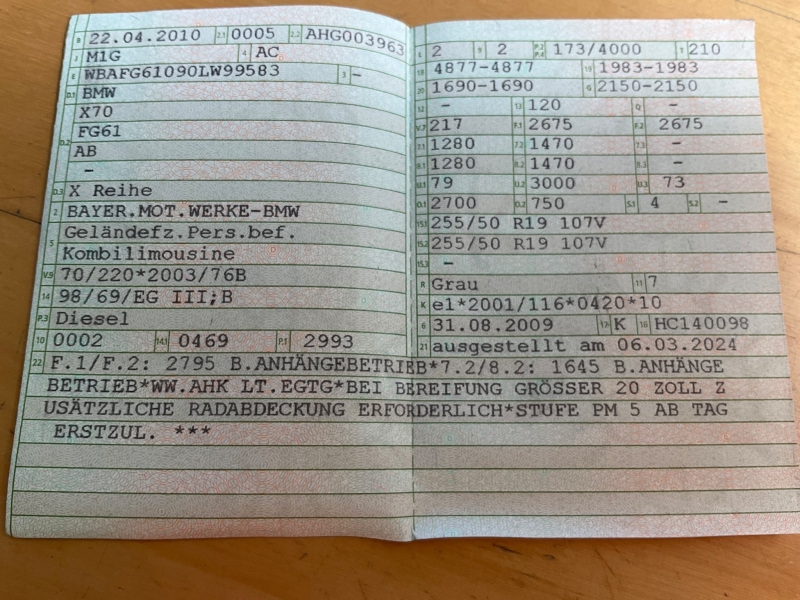 B 22.04.2010 2.1 0005 2.2 AHG003963
J M1G 4 AC
E WBAFG61090LW99583 3 -
D.1 BMW
X70
FG61
D.2 AB
-
D.3 X Reihe
2 BAYER.MOT.WERKE-BMW
Geländefz.Pers.bef.
5 Kombilimousine
V.9 70/220*2003/76B
14 98/69/EG III;B
P.3 Diesel
10 0002 14.1 0469 P.1 2993
L 2 9 2 P.2 P.4 173/4000 T 210
18 4877-4877 19 1983-1983
20 1690-1690 G 2150-2150
12 - 13 120 Q -
V.7 217 F.1 2675 F.2 2675
7.1 1280 7.2 1470 7.3 -
8.1 1280 8.2 1470 8.3 -
U.1 79 U.2 3000 U.3 73
O.1 2700 O.2 750 S.1 4 S.2 -
15.1 255/50 R19 107V
15.2 255/50 R19 107V
15.3 -
R Grau 11 7
K e1*2001/116*0420*10
6 31.08.2009 17 K 16 HC140098
21 ausgestellt am 06.03.2024
22 F.1/F.2: 2795 B.ANHÄNGEBETRIEB*7.2/8.2: 1645 B.ANHÄNGE
BETRIEB*WW.AHK LT.EGTG*BEI BEREIFUNG GRÖSSER 20 ZOLL Z
USÄTZLICHE RADABDECKUNG ERFORDERLICH*STUFE PM 5 AB TAG
ERSTZUL. ***